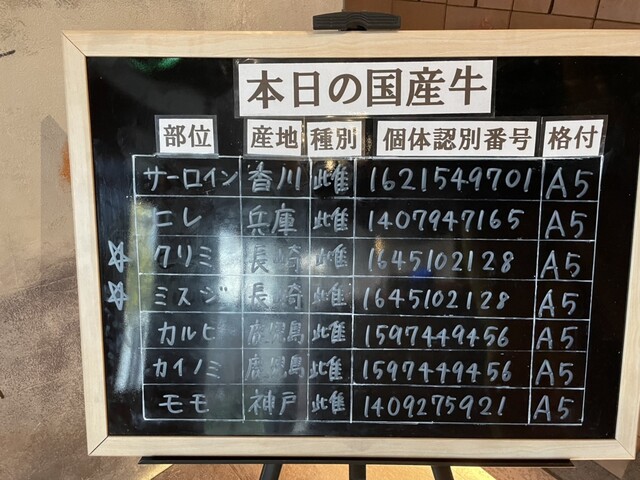 本日の国産牛
部位 産地 種別 個体認別番号 格付
サーロイン 香川 雌 1621549701 A5
ヒレ 兵庫 雌 1407947165 A5
☆ クリミ 長崎 雌 1645102128 A5
☆ ミスジ 長崎 雌 1645102128 A5
カルビ 鹿児島 雌 1597449456 A5
カイノミ 鹿児島 雌 1597449456 A5
モモ 神戸 雌 1409275921 A5